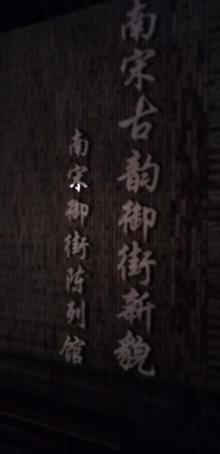 南宋古韵御街新貌
南宋御街陈列馆